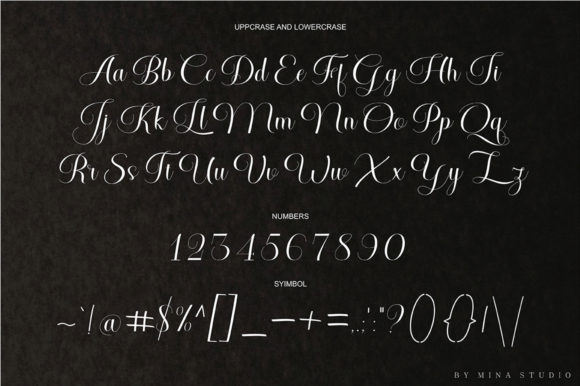 UPPCRASE AND LOWERCRASE
Aa Bb Cc Dd Ee Ff Gg Hh Ii
Jj Kk Ll Mm Nn Oo Pp Qq
Rr Ss Tt Uu Vv Ww Xx Yy Zz
NUMBERS
1234567890
SYIMBOL
~`!@#$%^[]_—+=,.;:'"?(){}/|\/
BY MINA STUDIO